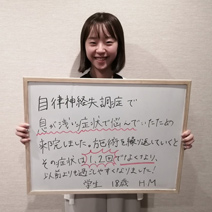 自律神経失調症で
息が浅い症状で悩んでいたため
来院しました。施術を繰り返していくと
その症状は1,2回でなくなり、
以前よりも過ごしやすくなりました!
学生 18歳 H.M